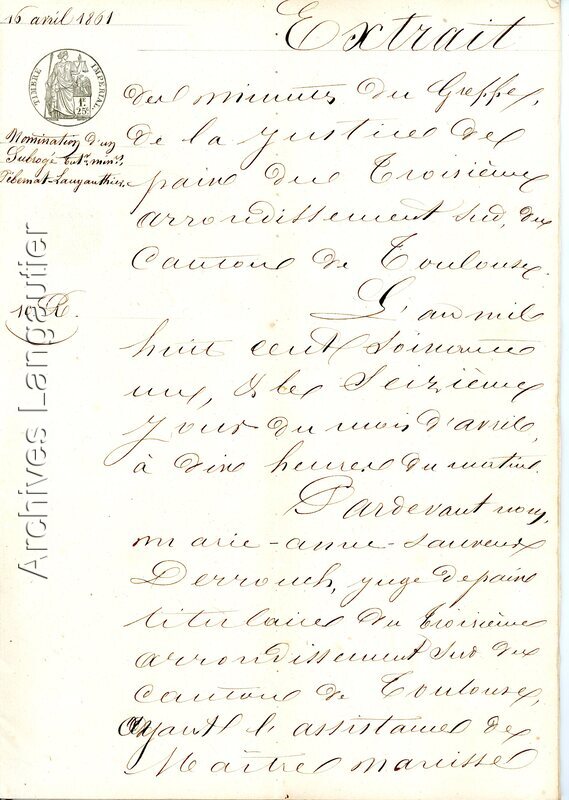 16 avril 1861
Extrait
TIMBRE IMPERIAL
1F.
25C
Nomination d'un
Subrogé tutr. mins.
des minutes du Greffe,
de la justice de
paix du Troisième
arrondissement sud, du
Canton de Toulouse.
L'an mil
huit cent soixante
un, & le Seizième
jour du mois d'avril,
à dix heures du matin.
Pardevant nous,
marie-anne-sauveur
Derrouch, juge de paix
titulaire du troisième
arrondissement sud du
canton de Toulouse,
ayant l'assistance de
Maître narcisse
10 R.
Archives Langautier